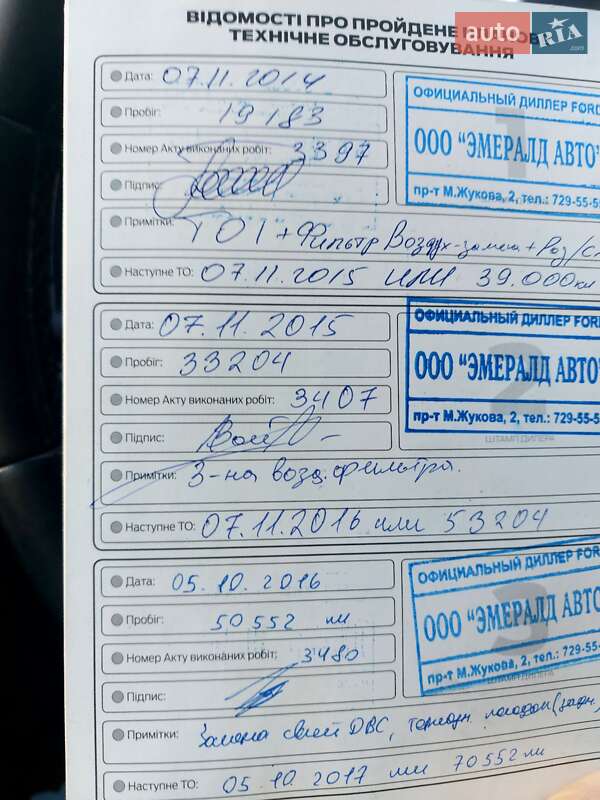 auto RIA .com
ВІДОМОСТІ ПРО ПРОЙДЕНЕ
ТЕХНІЧНЕ ОБСЛУГОВУВАННЯ
Дата: 07.11.2014
Пробіг: 19183
Номер Акту виконаних робіт: 3397
Підпис:
Примітки: ТО1 + Фильтр Воздух-замена +
Наступне ТО: 07.11.2015 или 39.000км
1
ОФИЦИАЛЬНЫЙ ДИЛЛЕР FORD
ООО "ЭМЕРАЛД АВТО"
пр-т М.Жукова, 2, тел.: 729-55-5
Дата: 07.11.2015
Пробіг: 33204
Номер Акту виконаних робіт: 3407
Підпис:
Примітки: З-на возд.фильтра.
Наступне ТО: 07.11.2016 или 53204
2
ОФИЦИАЛЬНЫЙ ДИЛЛЕР FORD
ООО "ЭМЕРАЛД АВТО"
пр-т М.Жукова, 2, тел.: 729-55-5
ШТАМП ДИЛЕРА
Дата: 05.10.2016
Пробіг: 50552 км
Номер Акту виконаних робіт: 3480
Підпис:
Примітки: Замена свечей ДВС,
Наступне ТО: 05.10.2017 или 70552 км
3
ОФИЦИАЛЬНЫЙ ДИЛЛЕР FORD
ООО "ЭМЕРАЛД АВТО
пр-т М.Жукова, 2, тел.: 729-55
ШТАМП ДИЛЕРА